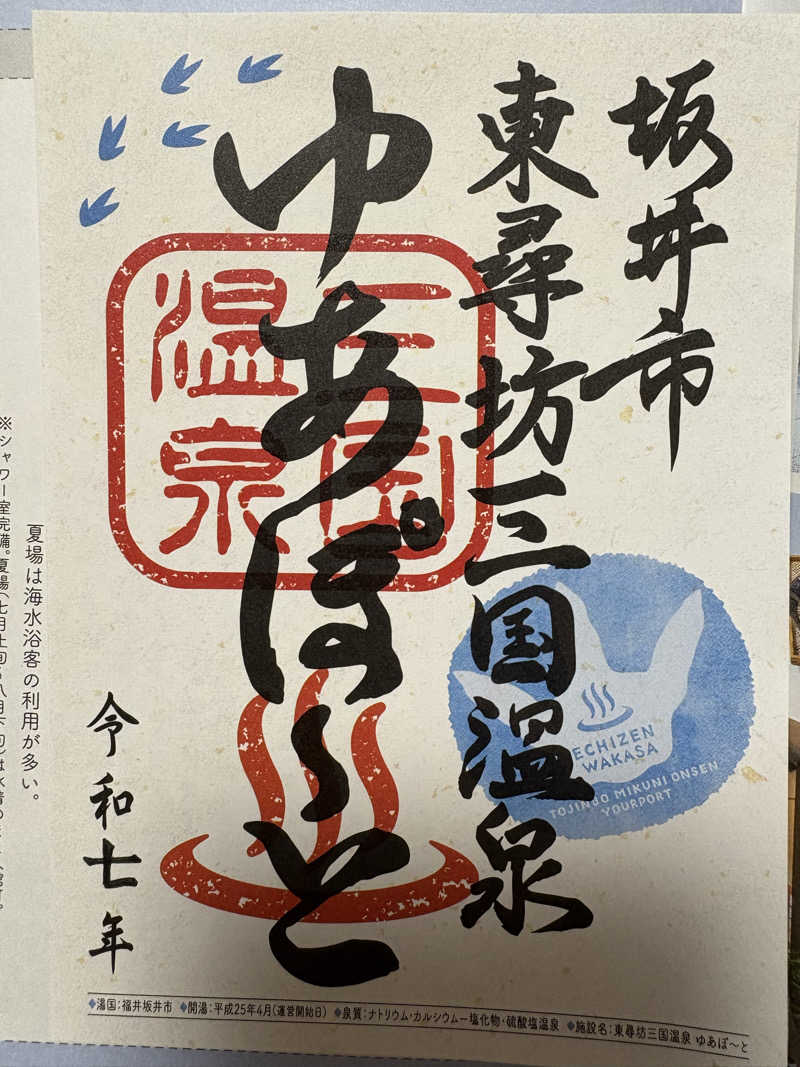 坂井市
東尋坊三国温泉
ゆあぽ〜と
三国
温泉
ECHIZEN
WAKASA
TOJINBO MIKUNI ONSEN
YOURPORT
令和七年
◆湯国:福井坂井市 ◆開湯:平成25年4月(運営開始日) ◆泉質:ナトリウム・カルシウムー塩化物・硫酸塩温泉 ◆施設名:東尋坊三国温泉 ゆあぽ〜と
夏場は海水浴客の利用が多い。
※シャワー室完備。夏場(七月上旬〜八月下旬)は水着の